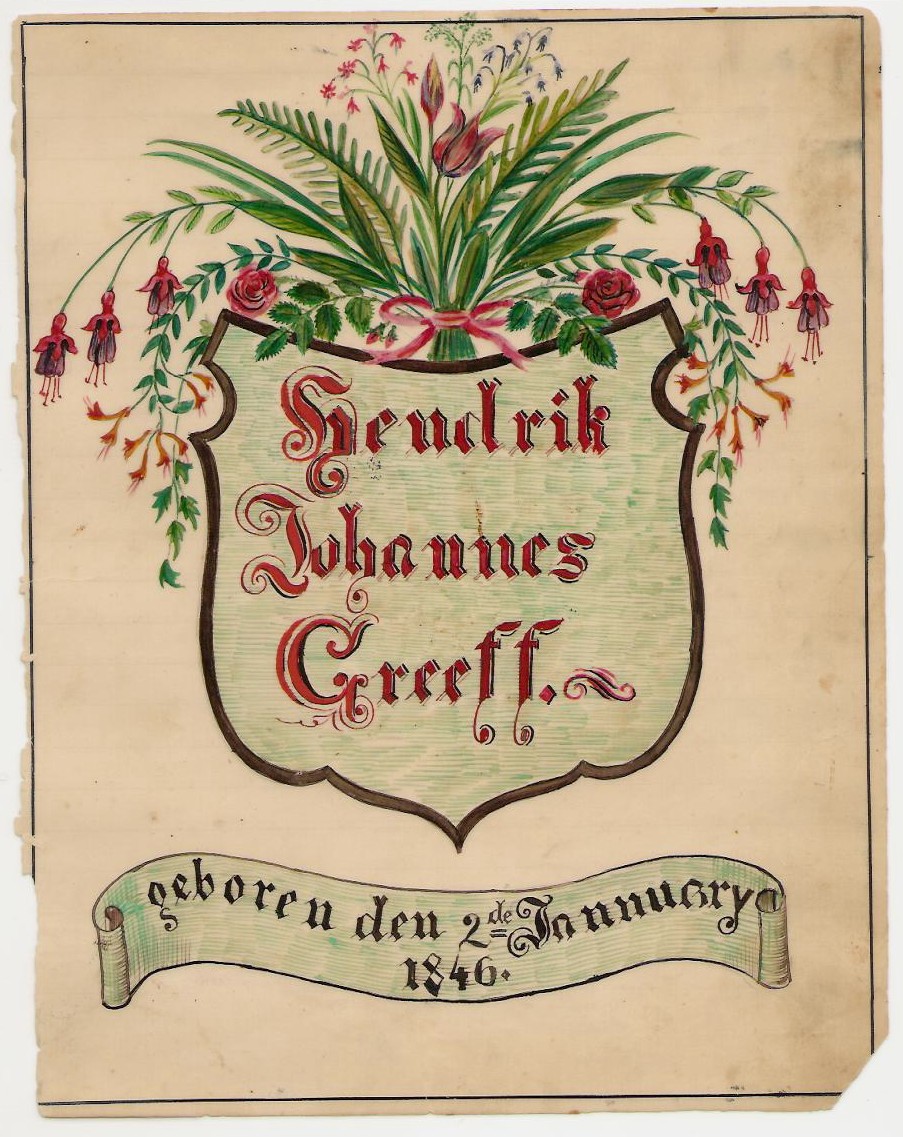 Hendrik
Johannes
Greeff.
geboren den 2de Jannuary
1846.